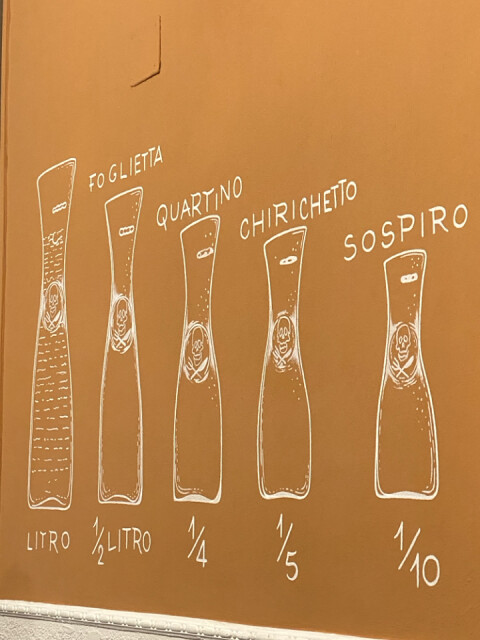 FOGLIETTA
QUARTINO
CHIRICHETTO
SOSPIRO
LITRO
1/2 LITRO
1/4
1/5
1/10